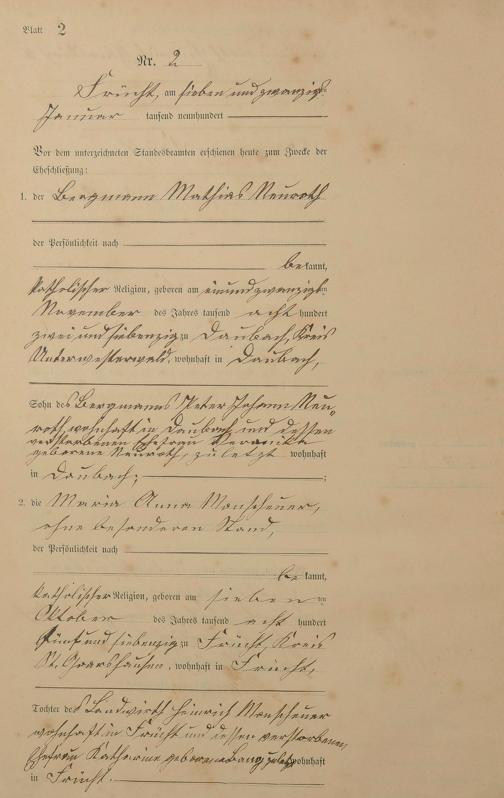 Blatt 2
Nr. 2
Frücht, am sieben und zwanzigsten
Januar tausend neunhundert
Vor dem unterzeichneten Standesbeamten erschienen heute zum Zwecke der
Eheschließung:
1. der Bergmann Mathias Neuroth
der Persönlichkeit nach
bekannt,
katholischer Religion, geboren am einundzwanzigsten
November des Jahres tausend acht hundert
zwei und siebenzig zu Daubach, Kreis
Unterwesterwald, wohnhaft in Daubach,
Sohn des Bergmanns Peter Johann Neu-
roth, wohnhaft in Daubach und dessen
verstorbenen Ehefrau Veronika
geborene Neuroth, zuletzt wohnhaft
in Daubach;
2. die Maria Anna Monscheuer,
ohne besonderen Stand,
der Persönlichkeit nach
bekannt,
katholischer Religion, geboren am sieben ten
Oktober des Jahres tausend acht hundert
fünf und siebenzig zu Frücht, Kreis
St. Goarshausen, wohnhaft in Frücht,
Tochter des Landwirth Heinrich Monscheuer
wohnhaft in Frücht und dessen verstorbenen
Ehefrau Katharina geborene Bang zuletzt wohnhaft
in Frücht.